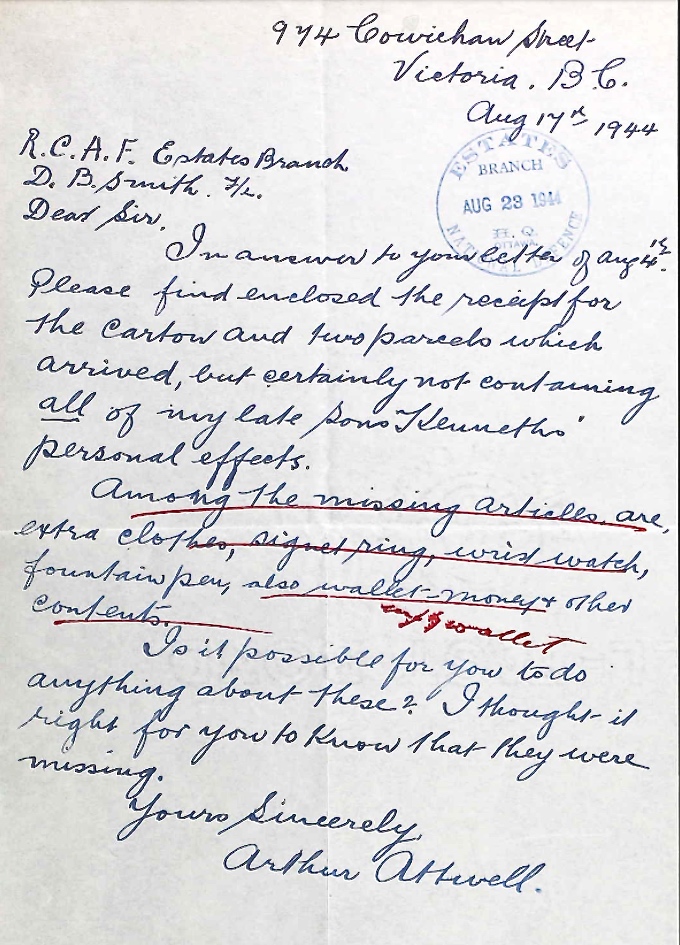 974 Cowichan Street
Victoria. B.C.
Aug 17th 1944
R.C.A.F. Estates Branch
D. B. Smith. F/L.
Dear Sir,
ESTATES
BRANCH
AUG 23 1944
H.Q.
OTTAWA
NATIONAL DEFENCE
In answer to your letter of Aug 4th.
Please find enclosed the receipt for
the carton and two parcels which
arrived, but certainly not containing
all of my late sons "Kenneths"
personal effects.
Among the missing articles, are,
extra clothes, signet ring, wrist watch,
fountain pen, also wallet-money & other
contents.
wallet
Is it possible for you to do
anything about these? I thought it
right for you to know that they were
missing.
Yours Sincerely,
Arthur Attwell.